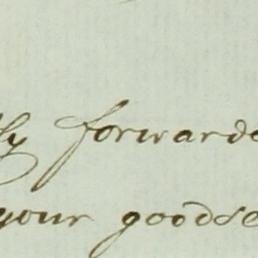 ly forwarde
your goodse